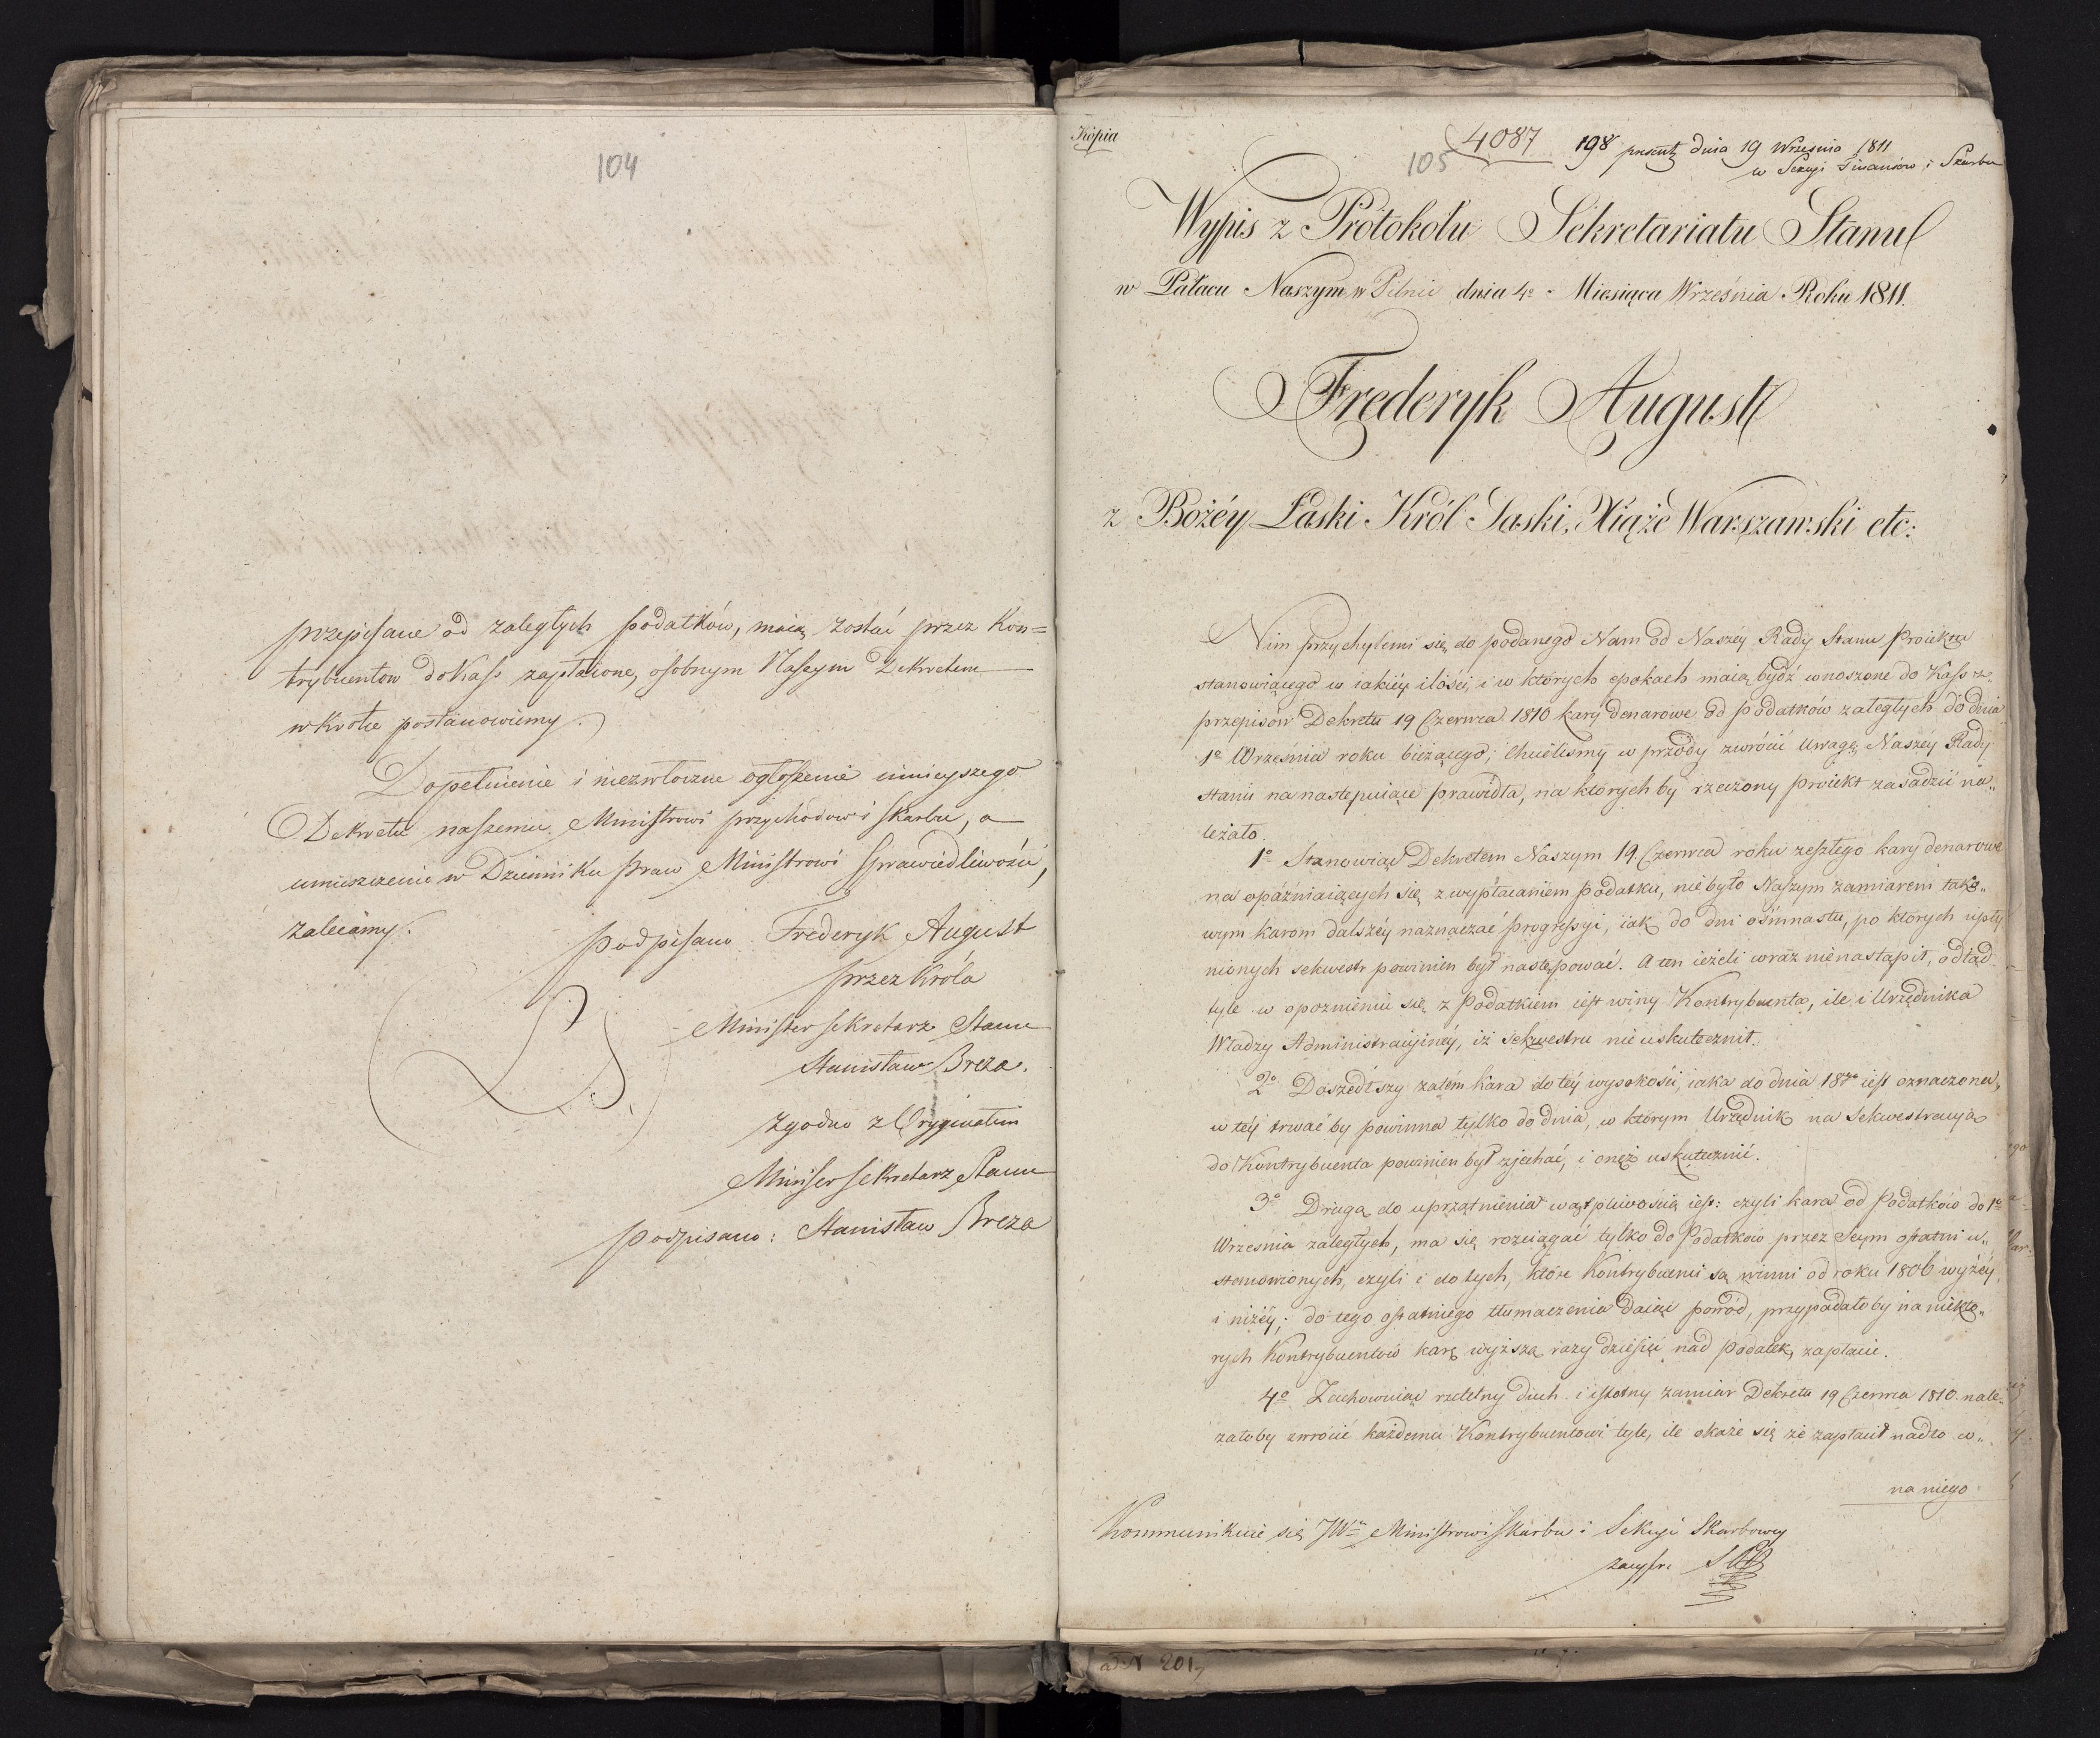 104
przepisane od zaległych podatków, maią zostać przez Kon=
trybuentow do Kass zapłacone, osobnym Naszym Dekretem
wkrotce postanowiemy.
Dopełnienie i niezwłoczne ogłoszenie ninieyszego
Dekretu naszemu Ministrowi przychodow i skarbu, a
umieszczenie w Dzienniku praw Ministrowi Sprawiedliwości,
zalecamy.
podpisano Frederyk August
przez Króla
Minister sekretarz Stanu
Stanisław Breza.
Zgodno z Oryginałem
Minister sekretarz Stanu
podpisano: Stanisław Breza
Kópia
105 4087 198 prezent dnia 19 Września 1811
w Sekcyi Finansów i Skarbu
Wypis z Protokółu Sekretariatu Stanu
w Pałacu Naszym w Pilnic dnia 4º Miesiąca Września Roku 1811.
Frederyk August
z Bożéy Łaski Król Saski, Xiąże Warszawski etc:
Nim przychylemi się do podanego Nam od Naszéy Rady Stanu proiektu
stanowiącego w iakiéy ilości, i w których epokach maią bydź wnoszone do Kass z
przepisów Dekretu 19 Czerwca 1810 kary denarowe od podatków zaległych do dnia
1º Września roku bieżącego; chcieliśmy w przódy zwrócić uwagę Naszéy Rady
stanu na następuiące prawidła, na których by rzeczony proiekt zasadzić na„
leżało.
1º Stanowiąc Dekretem Naszym 19. Czerwca roku zeszłego kary denarowe
na opóźniaiących się z wypłacaniem podatku, nie było Naszym zamiarem tako„
wym karom dalszéy naznaczać progressyi, iak do dni ośmnastu, po których upły
nionych sekwestr powinien był następować. A ten ieżeli wraz nie nastąpił, odtąd
tyle w opoznieniu się z Podatkiem iest winy Kontrybuenta, ile i Urzędnika
Władzy Administracyinéy, iż sekwestru nie uskutecznił.
2º Doszedłszy zatém kara do téy wysokości, iaka do dnia 18go iest oznaczona,
w téy trwać by powinna tylko do dnia, w którym Urzędnik na sekwestracyą
do Kontrybuenta powinien był zjechać, i onęż uskutecznić.
3º Drugą do uprzątnienia wątpliwością iest: czyli kara od Podatków do 1º
Września zaległych, ma się rozciągać tylko do Podatków przez Seym ostatni u„
stanowionych, czyli i do tych, które Kontrybuenci są winni od roku 1806 wyżéy
i niżéy; do tego ostatniego tłumaczenia daiąc powód, przypadałoby na niektó„
rych Kontrybuentów karę wyższą razy dziesięć nad podatek zapłacić.
4º Zachowuiąc rzetelny duch i istotny zamiar Dekretu 19 Czerwca 1810. nale„
załoby zwrócić każdemu Kontrybuentowi tyle, ile okaże się że zapłacił nadto w„
na niego
Kommunikuie się JWu Ministrowi Skarbu i Sekcyi Skarbowey
ad N 201